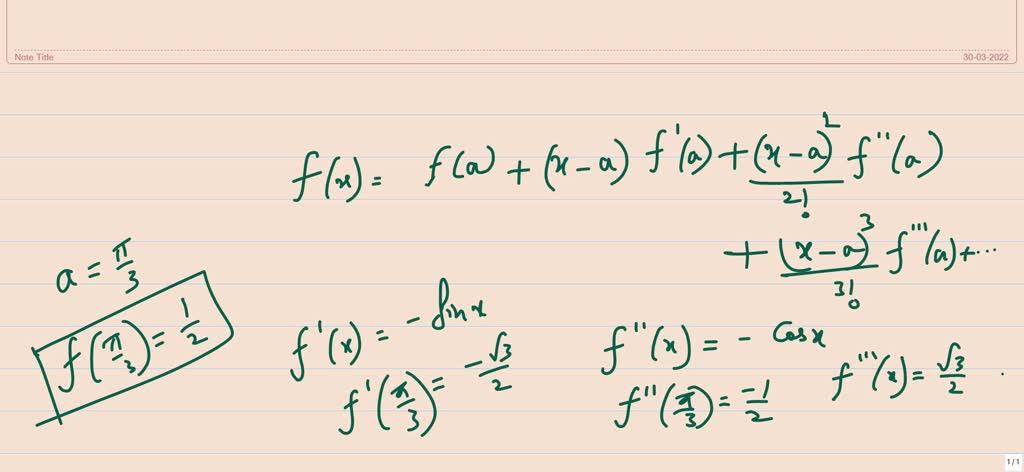 Note Title 30-03-2022
f(x) = f(a) + (x-a) f'(a) + (x-a)²/2! f''(a)
+ (x-a)³/3! f'''(a) + ...
a = π/3
f(π/3) = 1/2
f'(x) = - Sinx
f'(π/3) = -√3/2
f''(x) = - Cosx
f''(π/3) = -1/2
f'''(x) = √3/2 .
1 / 1